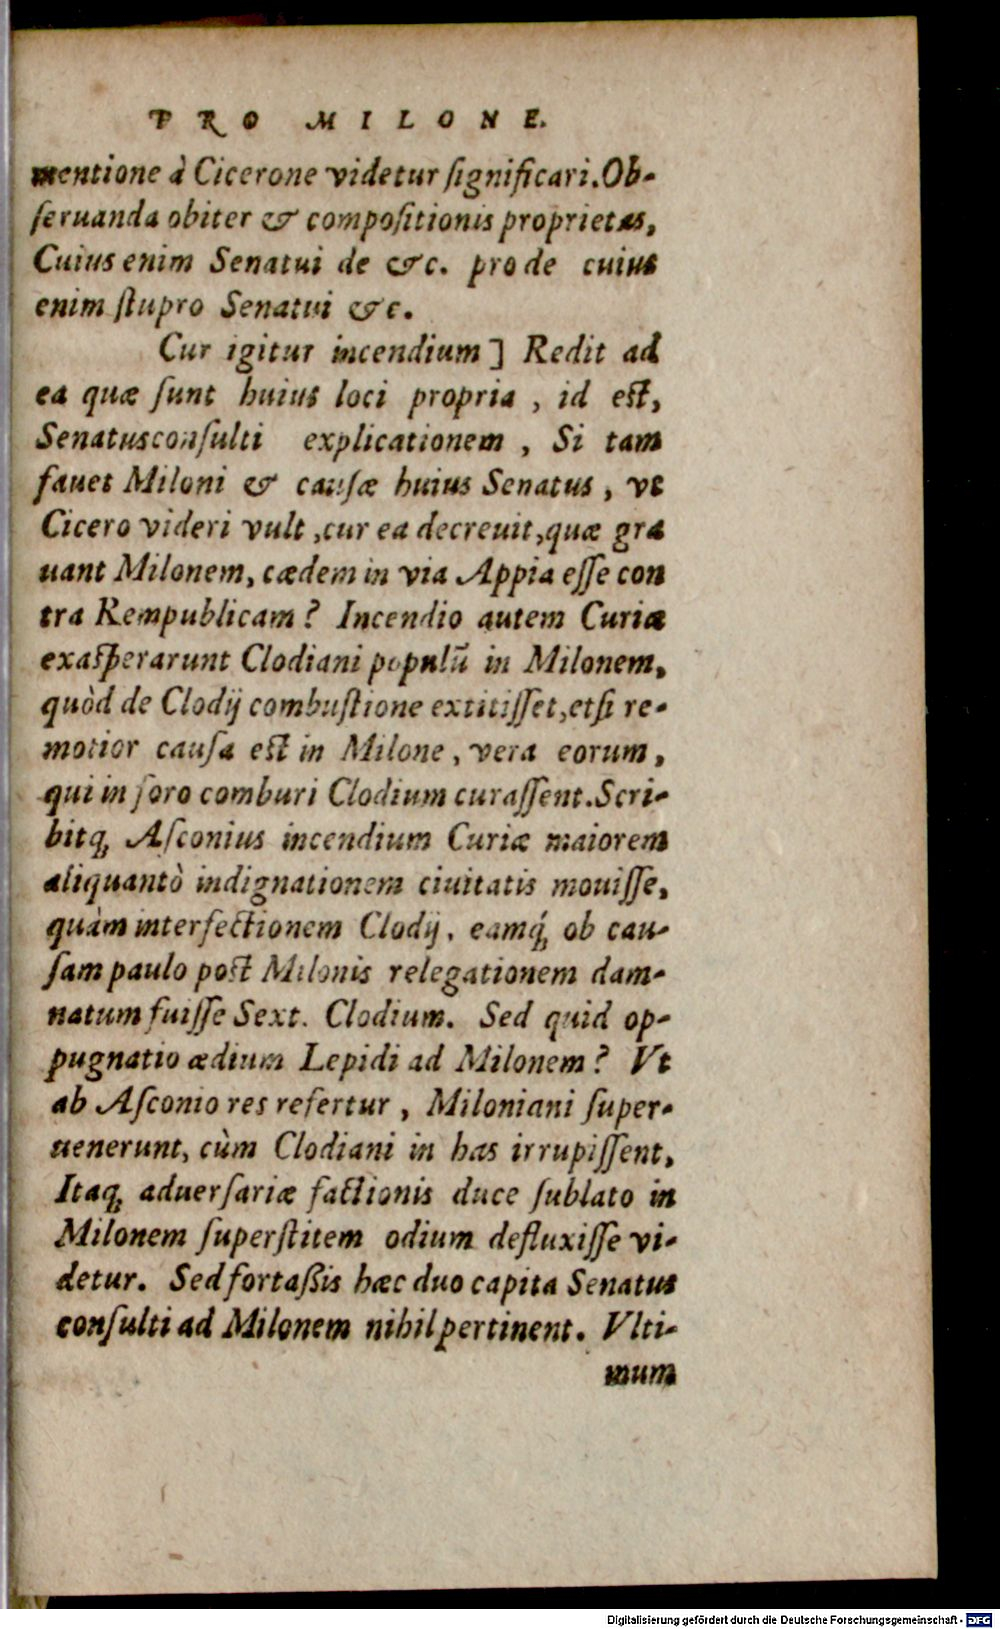 PRO MILONE.
mentione à Cicerone videtur ſignificari. Ob-
ſeruanda obiter & compoſitionis proprietas,
Cuius enim Senatui de &c. pro de cuius
enim ſtupro Senatui &c.
Cur igitur incendium] Redit ad
ea quæ ſunt huius loci propria , id eſt,
Senatusconſulti explicationem , Si tam
fauet Miloni & cauſæ huius Senatus , vt
Cicero videri vult ,cur ea decreuit,quæ gra
uant Milonem, cædem in via Appia eſſe con
tra Rempublicam ? Incendio autem Curiæ
exaſperarunt Clodiani populũ in Milonem,
quòd de Clodij combuſtione extitiſſet,etſi re-
motior cauſa eſt in Milone , vera eorum ,
qui in foro comburi Clodium curaſſent. Scri-
bitq́; Aſconius incendium Curiæ maiorem
aliquantò indignationem ciuitatis mouiſſe,
quàm interfectionem Clodij, eamq́; ob cau-
ſam paulo poſt Milonis relegationem dam-
natum fuiſſe Sext. Clodium. Sed quid op-
pugnatio ædium Lepidi ad Milonem ? Vt
ab Aſconio res refertur , Miloniani ſuper-
uenerunt, cùm Clodiani in has irrupiſſent,
Itaq; aduerſariæ factionis duce ſublato in
Milonem ſuperſtitem odium defluxiſſe vi-
detur. Sed fortaßis hæc duo capita Senatus
conſulti ad Milonem nihil pertinent. Vlti-
mum
Digitalisierung gefördert durch die Deutsche Forschungsgemeinschaft - DFG